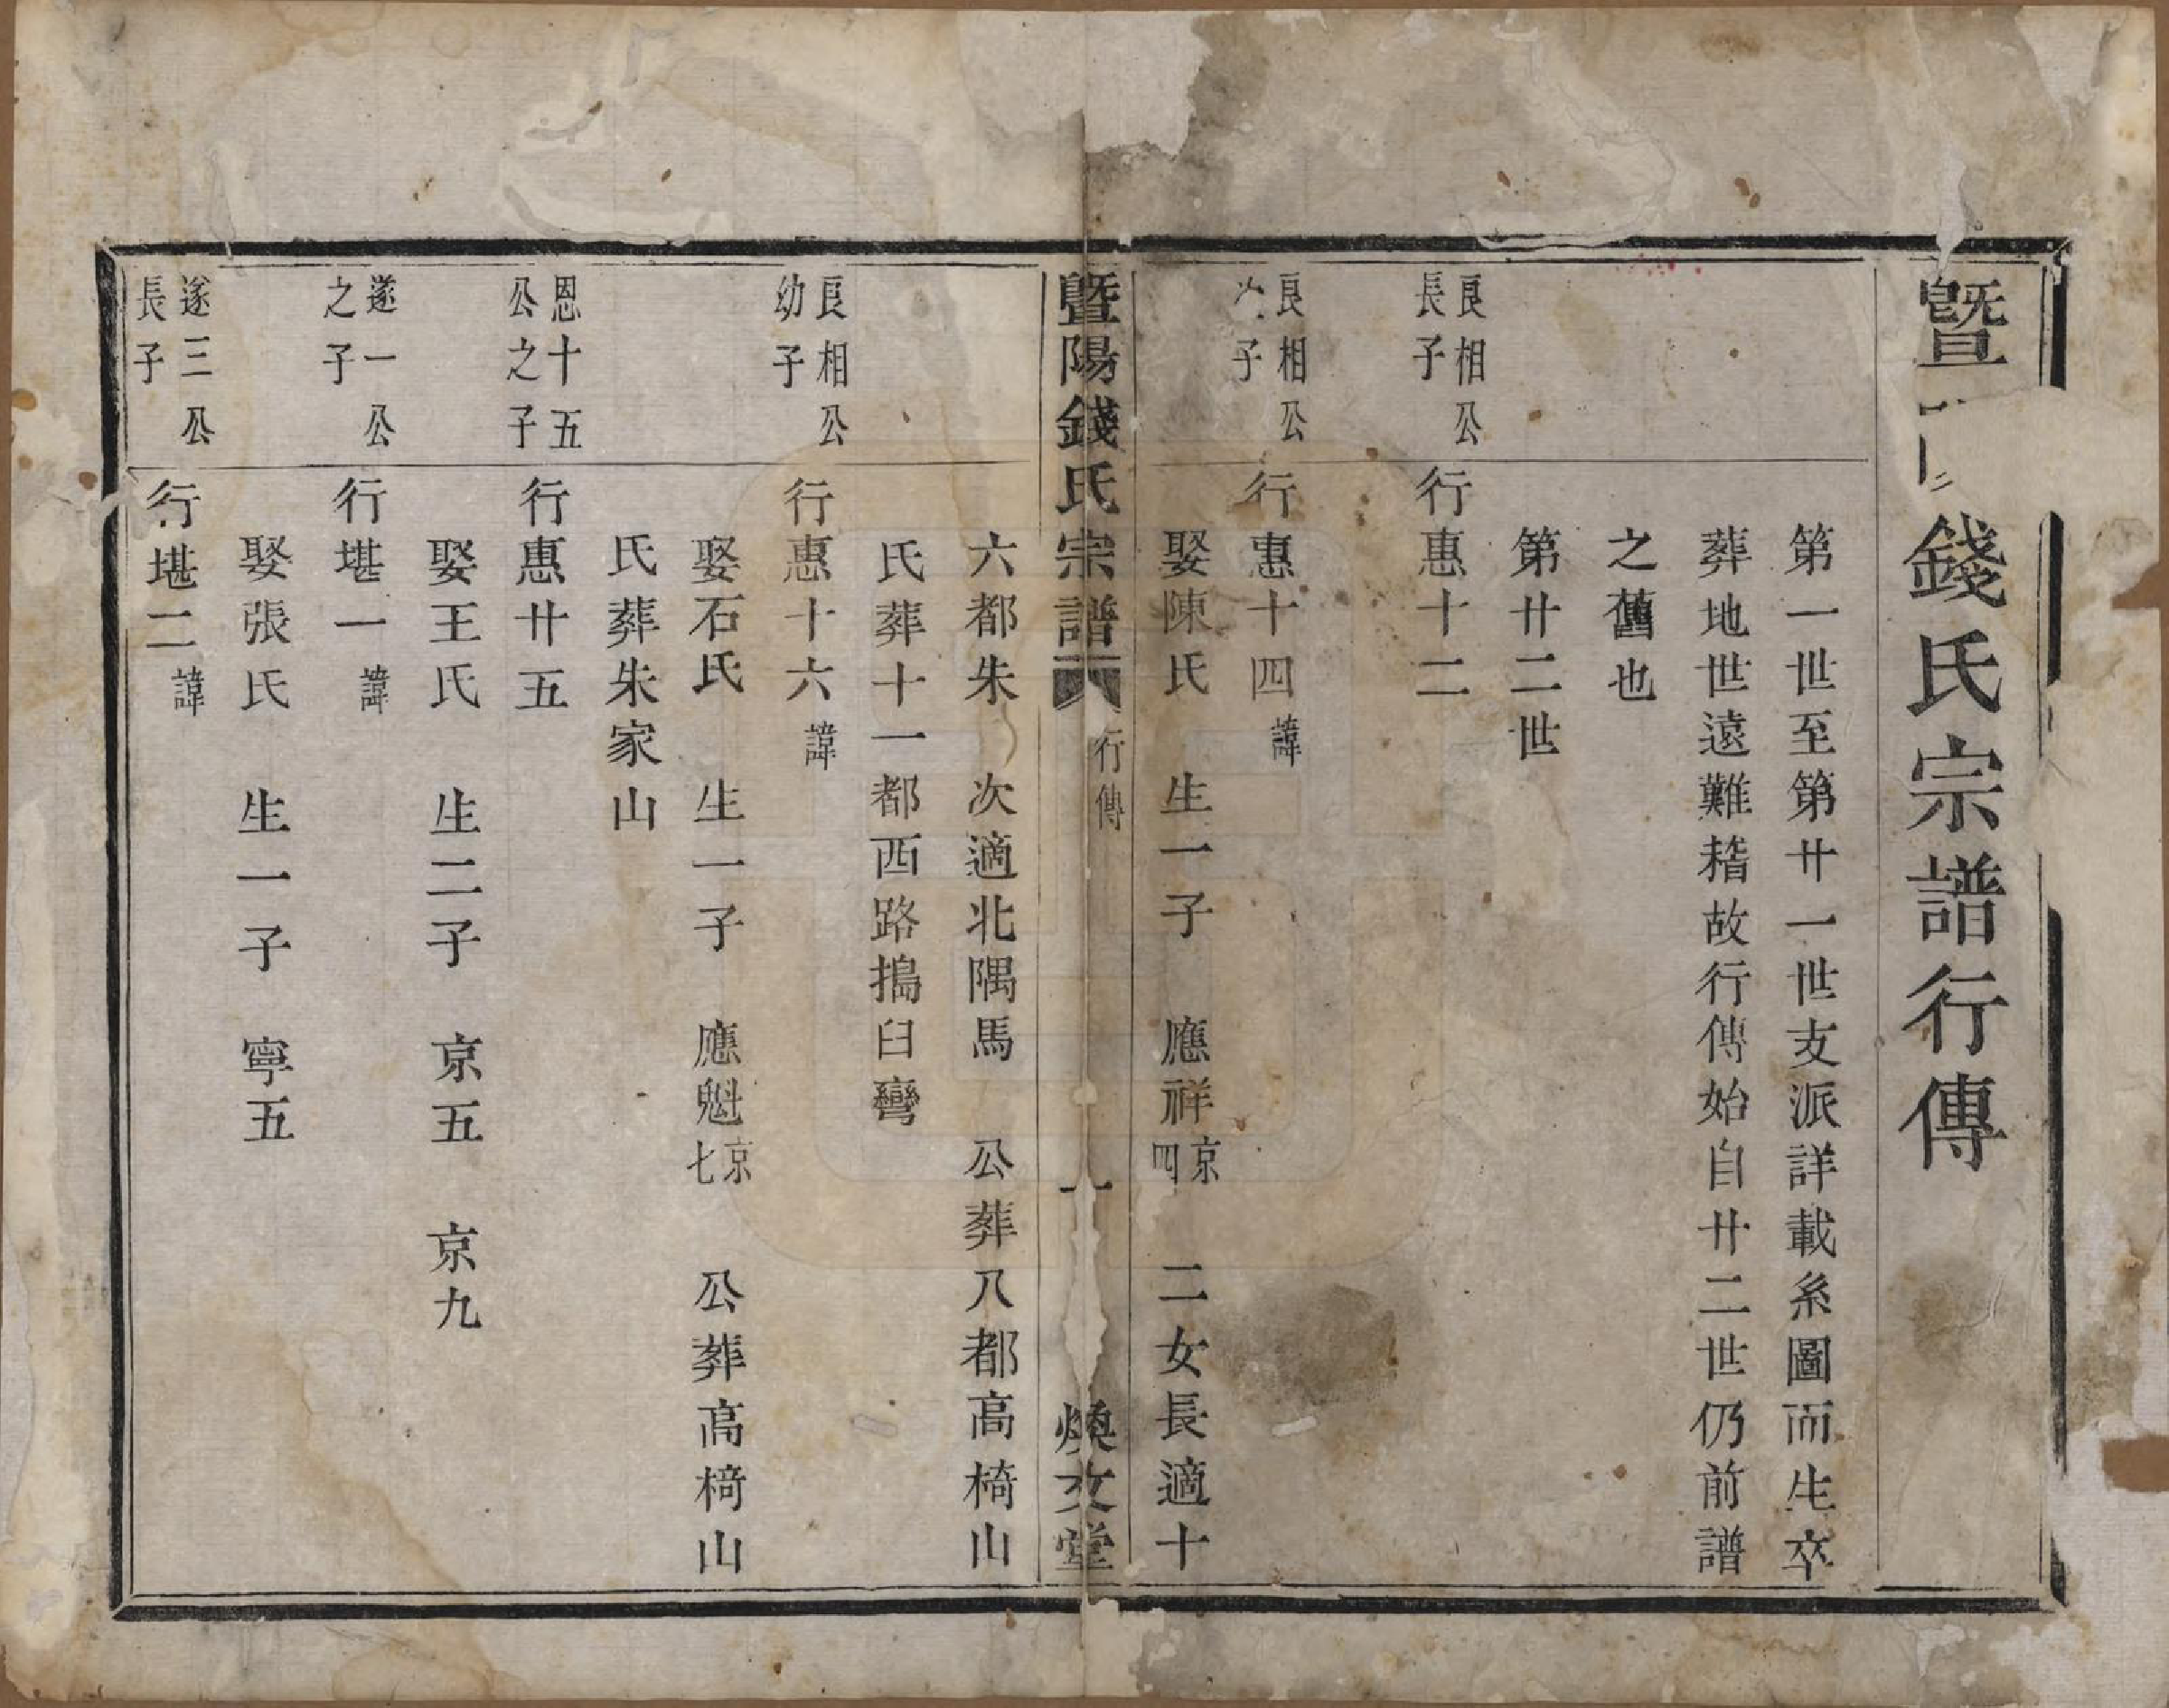 暨 錢氏宗譜行傳
第一世至第廿一世支派詳載系圖而生卒
葬地世遠難稽故行傳始自廿二世仍前譜
之舊也
第廿二世
良相公
長子
行惠十二
良相公
子
行惠十四諱
娶陳氏 生一子 應祥京四 二女長適十
暨陽錢氏宗譜 行傳 一 煥文堂
六都朱 次適北隅馬 公葬八都高椅山
氏葬十一都西路搗臼彎
良相公
幼子
行惠十六諱
娶石氏 生一子 應魁京七 公葬高椅山
氏葬朱家山
恩十五
公之子
行惠廿五
娶王氏 生二子 京五 京九
遂一公
之子
行堪一諱
娶張氏 生一子 寧五
遂三公
長子
行堪二諱